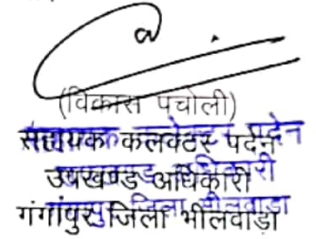 (विकास पंचोली)
सहायक कलक्टर पदेन
उपखण्ड अधिकारी
गंगापुर जिला भीलवाड़ा